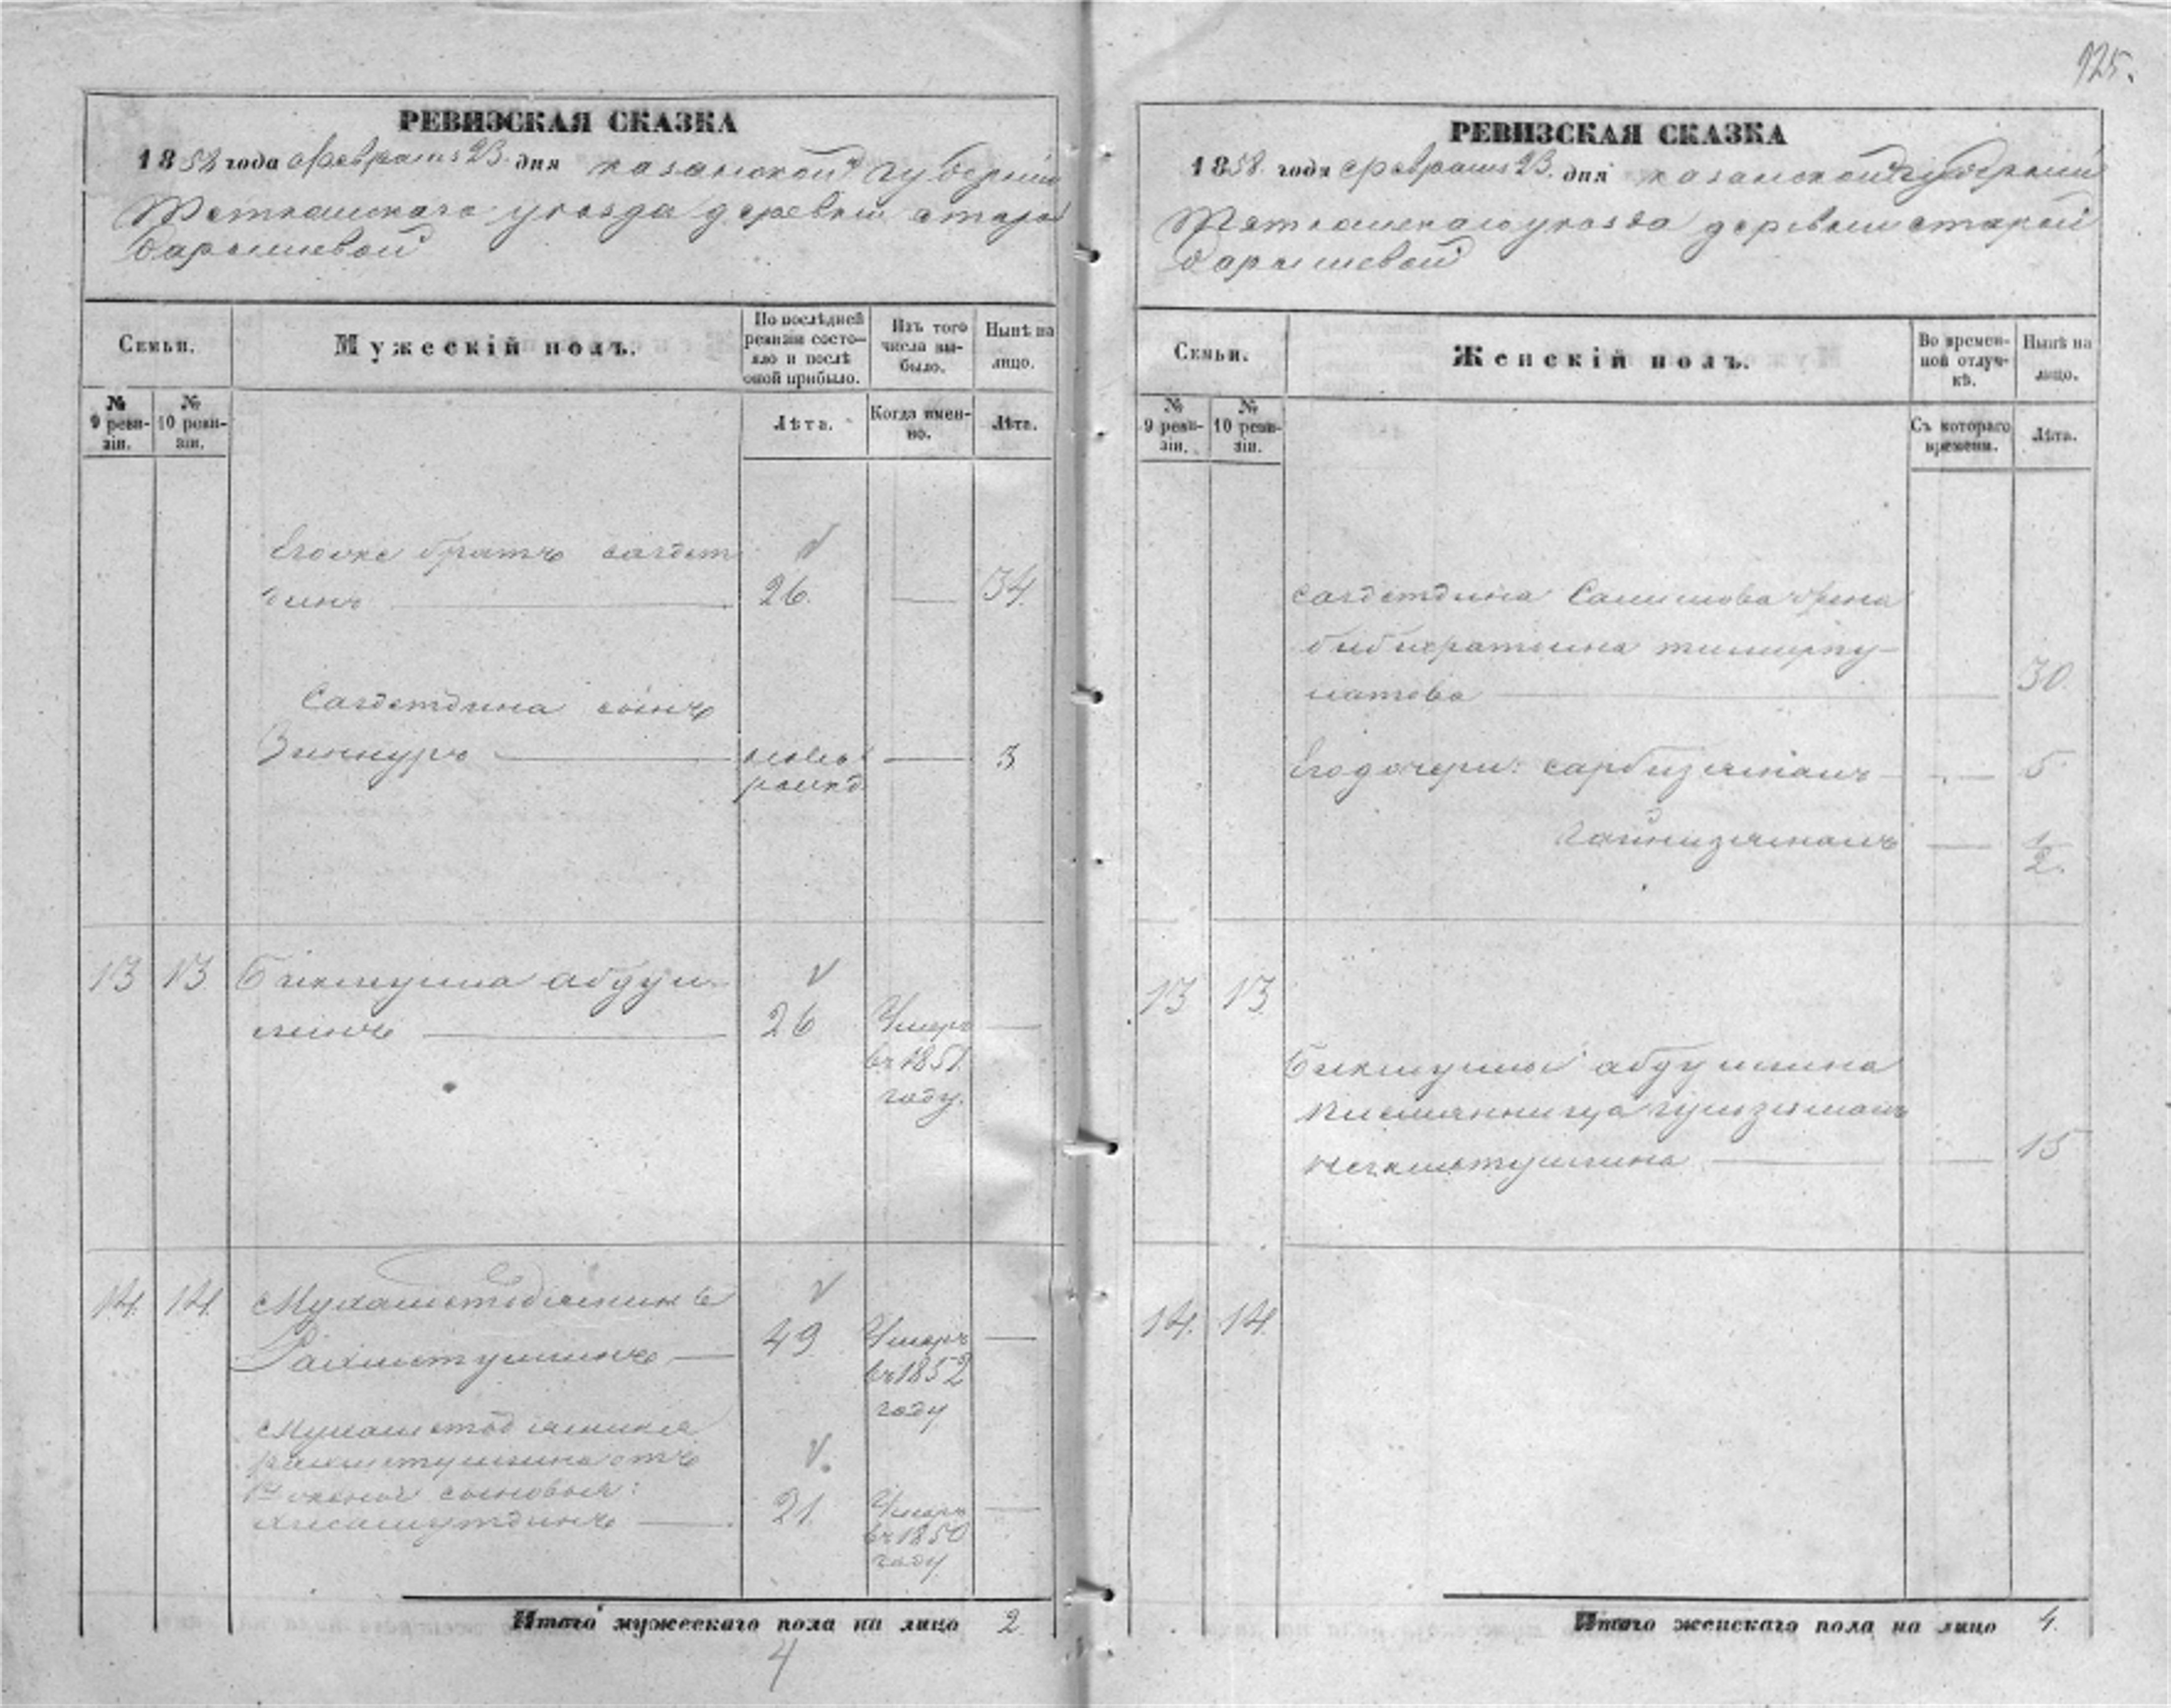 125.
РЕВИЗСКАЯ СКАЗКА
1858 года февраля 23. дня казанской губерніи
Тетюшскаго уезда деревни старой
барышевой
Семьи.
Мужескій полъ.
По послѣдней ревизіи состояло и послѣ оной прибыло.
Изъ того числа выбыло.
Нынѣ на лицо.
№ 9 ревизіи.
№ 10 ревизіи.
Лѣта.
Когда именно.
Лѣта.
Егоже братъ сагдет
динъ 26. 34.
Сагдетдина сынъ
Зиннуръ 3
13 13 Биктулла абдул
линъ 26 Умеръ
въ 1851
году.
14. 14. Мухаметдіаминъ
Рахметуллинъ 49 Умеръ
въ 1852
году
рахметуллина отъ
1й жены сыновья:
21. Умеръ
въ 1850
году
Итого мужескаго пола на лицо 2
4
РЕВИЗСКАЯ СКАЗКА
1858. года февраля 23. дня казанской губерніи
Тетюшскаго уезда деревни старой
барышевой
Семьи.
Женскій полъ.
Во временной отлучкѣ.
Нынѣ на лицо.
№ 9 ревизіи.
№ 10 ревизіи.
Съ котораго времени.
Лѣта.
сагдетдина Салимова жена
тимирпу-
латова 30.
Его дочери: сарбизямалъ 5
Гайнизямалъ 1/2.
13 13.
Биктуллы абдуллина
племянница гульзямалъ
15
14. 14.
Итого женскаго пола на лицо 4.